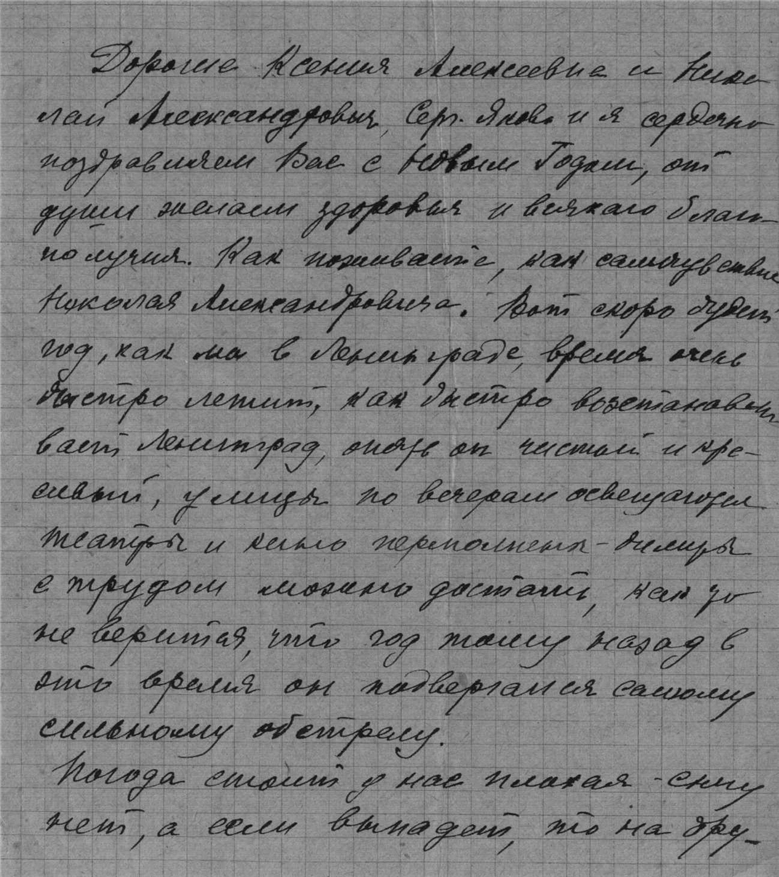 Дорогие Ксения Алексеевна и Нико-
лай Александрович, Серг. Яковл и я сердечно
поздравляем Вас с Новым Годом, от
души желаем здоровья и всякаго благо-
получия. Как поживаете, как самочувствие
Николая Александровича. Вот скоро будет
год, как мы в Ленинграде, время очень
быстро летит, как быстро возстанавли-
вают Ленинград, опять он чистый и кра-
сивый, улицы по вечерам освещаются
театры и кино переполнены - билеты
с трудом можно достать, как то
не верится, что год тому назад в
это время он подвергался самому
сильному обстрелу.
Погода стоит у нас плохая - снегу
нет, а если выпадет, то на дру-